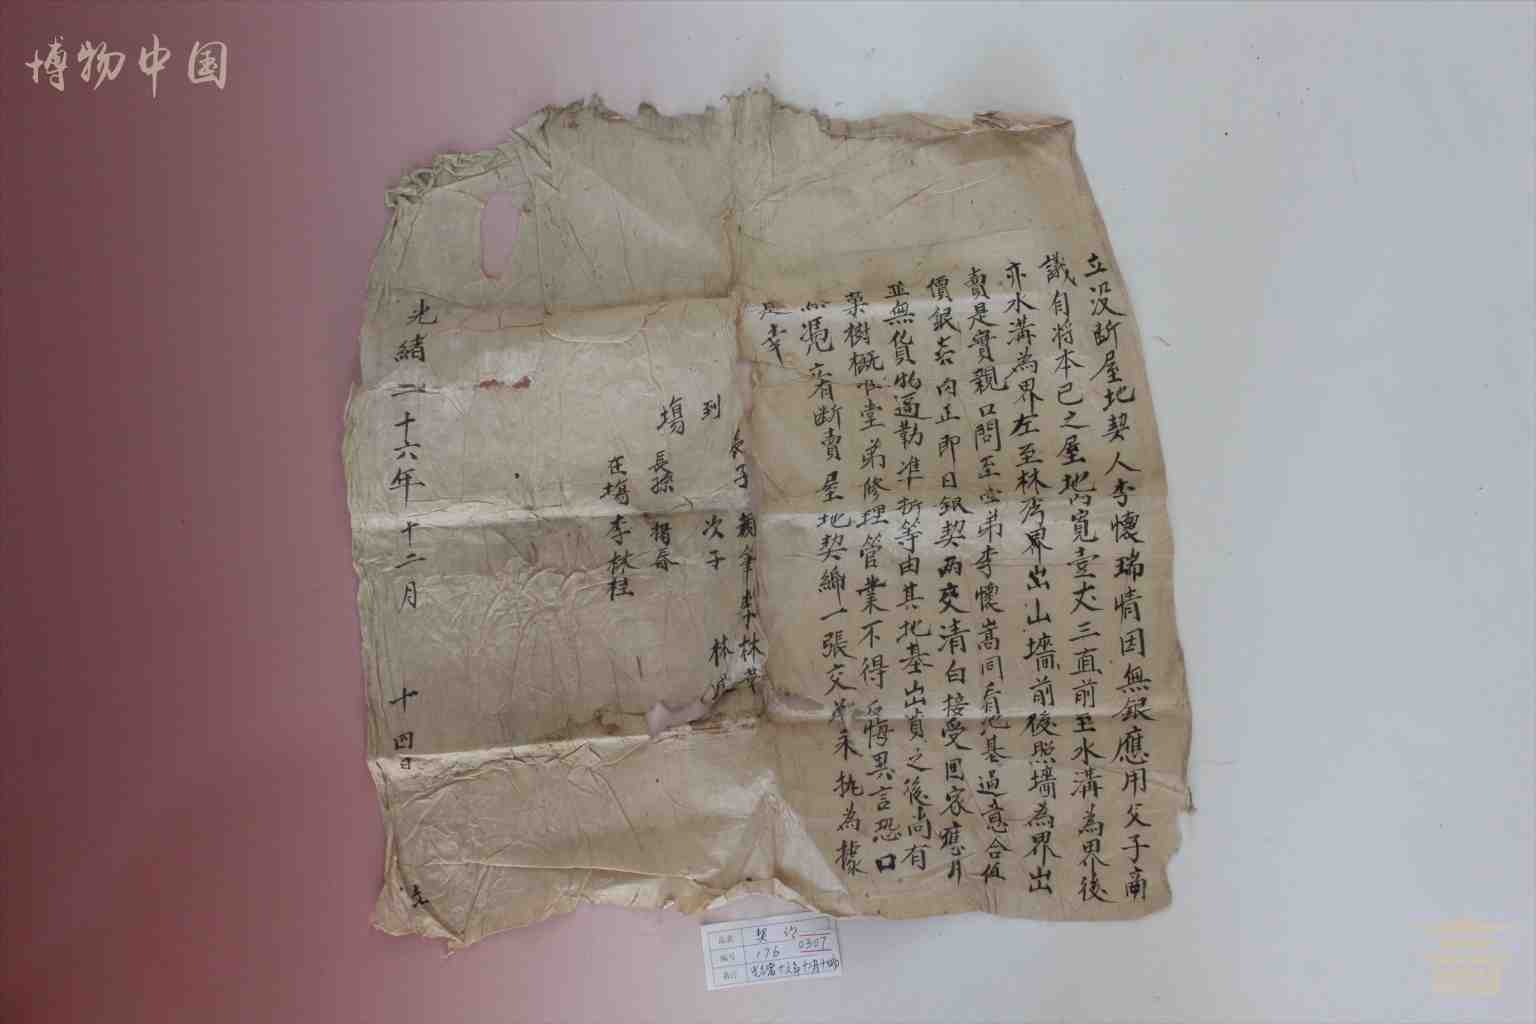 博物中国
立没断屋地契人李懷瑞情因無銀應用父子商
議自将本己之屋地寬壹丈三直前至水溝為界後
亦水溝為界左至林屋界出山墻前後照墻為界出
賣是實親口問至弟李懷嵩同看地基過意合值
價銀肉正即日银契両交清白接受囬家應用
並無货物逼勒准折等由其地基出賣之後尚有
菓樹概堂弟修理管業不得反悔異言恐口
無憑立有断賣屋地契一張交弟永执為據
是幸
長子 親筆李林
到 次子 林
塲 長孫 揚春
在塲 李林桂
光緒二十六年十二月 十四日 立
契约
176 0307